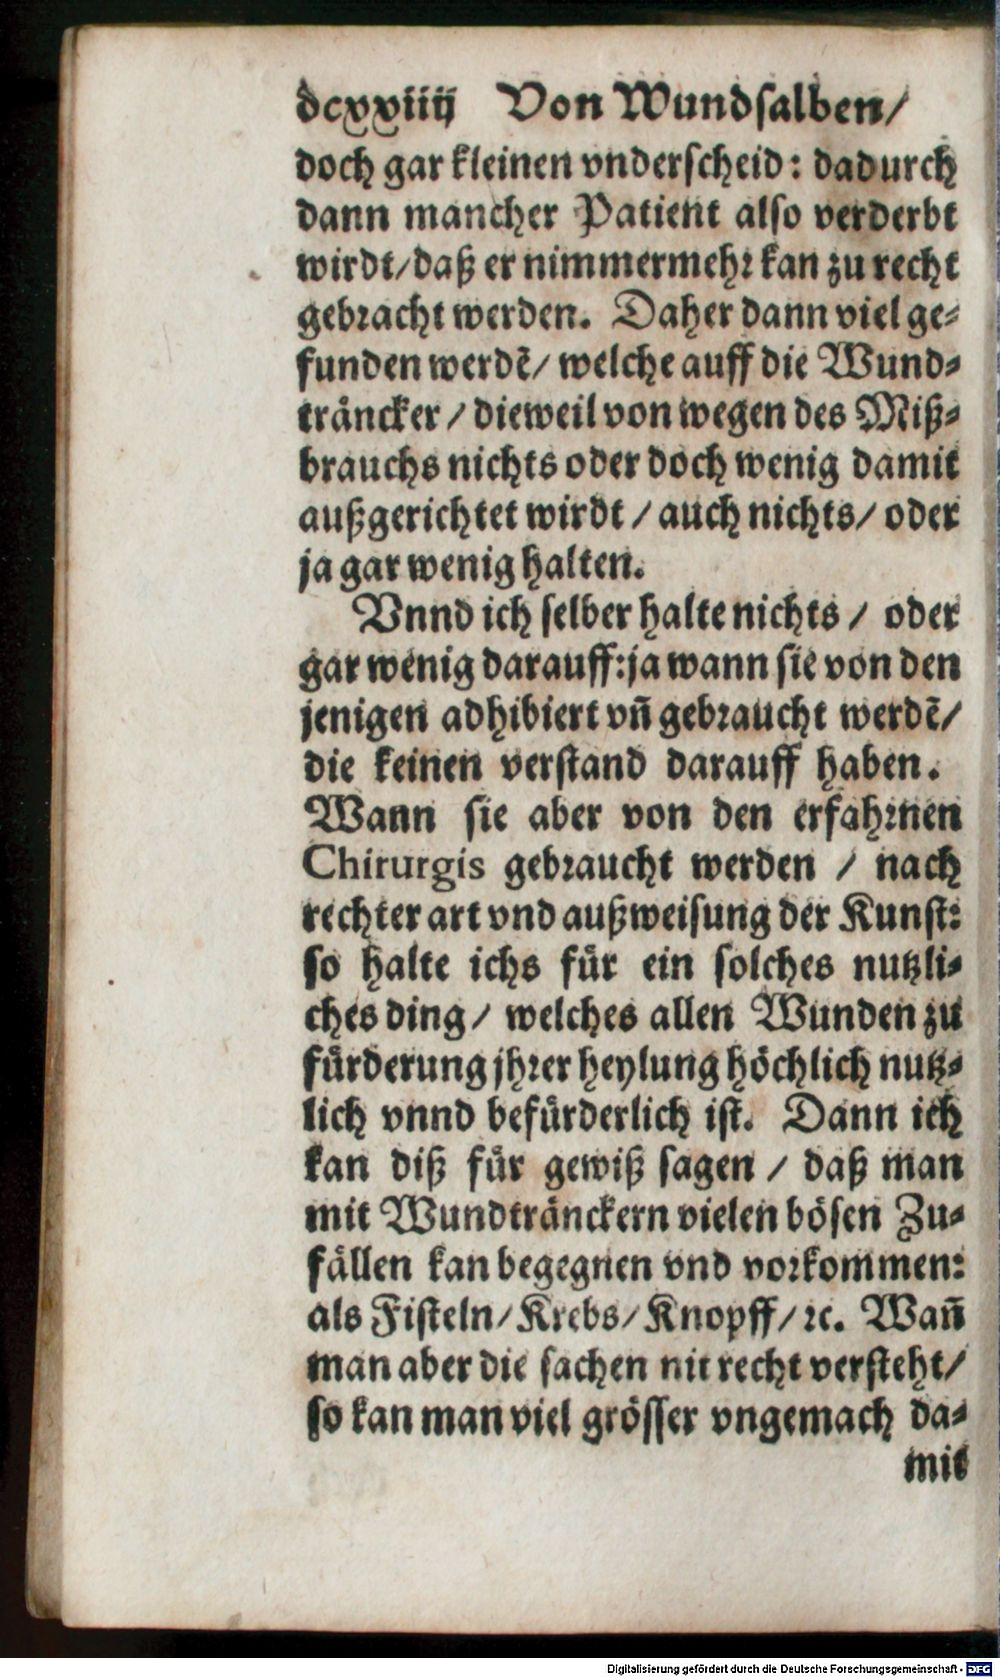 dcxxiiij Von Wundsalben/
doch gar kleinen vnderscheid: dadurch
dann mancher Patient also verderbt
wirdt/daß er nimmermehr kan zu recht
gebracht werden. Daher dann viel ge-
funden werdē/ welche auff die Wund-
träncker / dieweil von wegen des Miß-
brauchs nichts oder doch wenig damit
außgerichtet wirdt / auch nichts/ oder
ja gar wenig halten.
Vnnd ich selber halte nichts / oder
gar wenig darauff: ja wann sie von den
jenigen adhibiert vn̄ gebraucht werdē/
die keinen verstand darauff haben.
Wann sie aber von den erfahrnen
Chirurgis gebraucht werden / nach
rechter art vnd außweisung der Kunst:
so halte ichs für ein solches nutzli-
ches ding/ welches allen Wunden zu
fürderung jhrer heylung höchlich nutz-
lich vnnd befürderlich ist. Dann ich
kan diß für gewiß sagen / daß man
mit Wundtränckern vielen bösen Zu-
fällen kan begegnen vnd vorkommen:
als Fisteln/Krebs/Knopff/ꝛc. Wan̄
man aber die sachen nit recht versteht/
so kan man viel grösser vngemach da-
mit
Digitalisierung gefördert durch die Deutsche Forschungsgemeinschaft - DFG